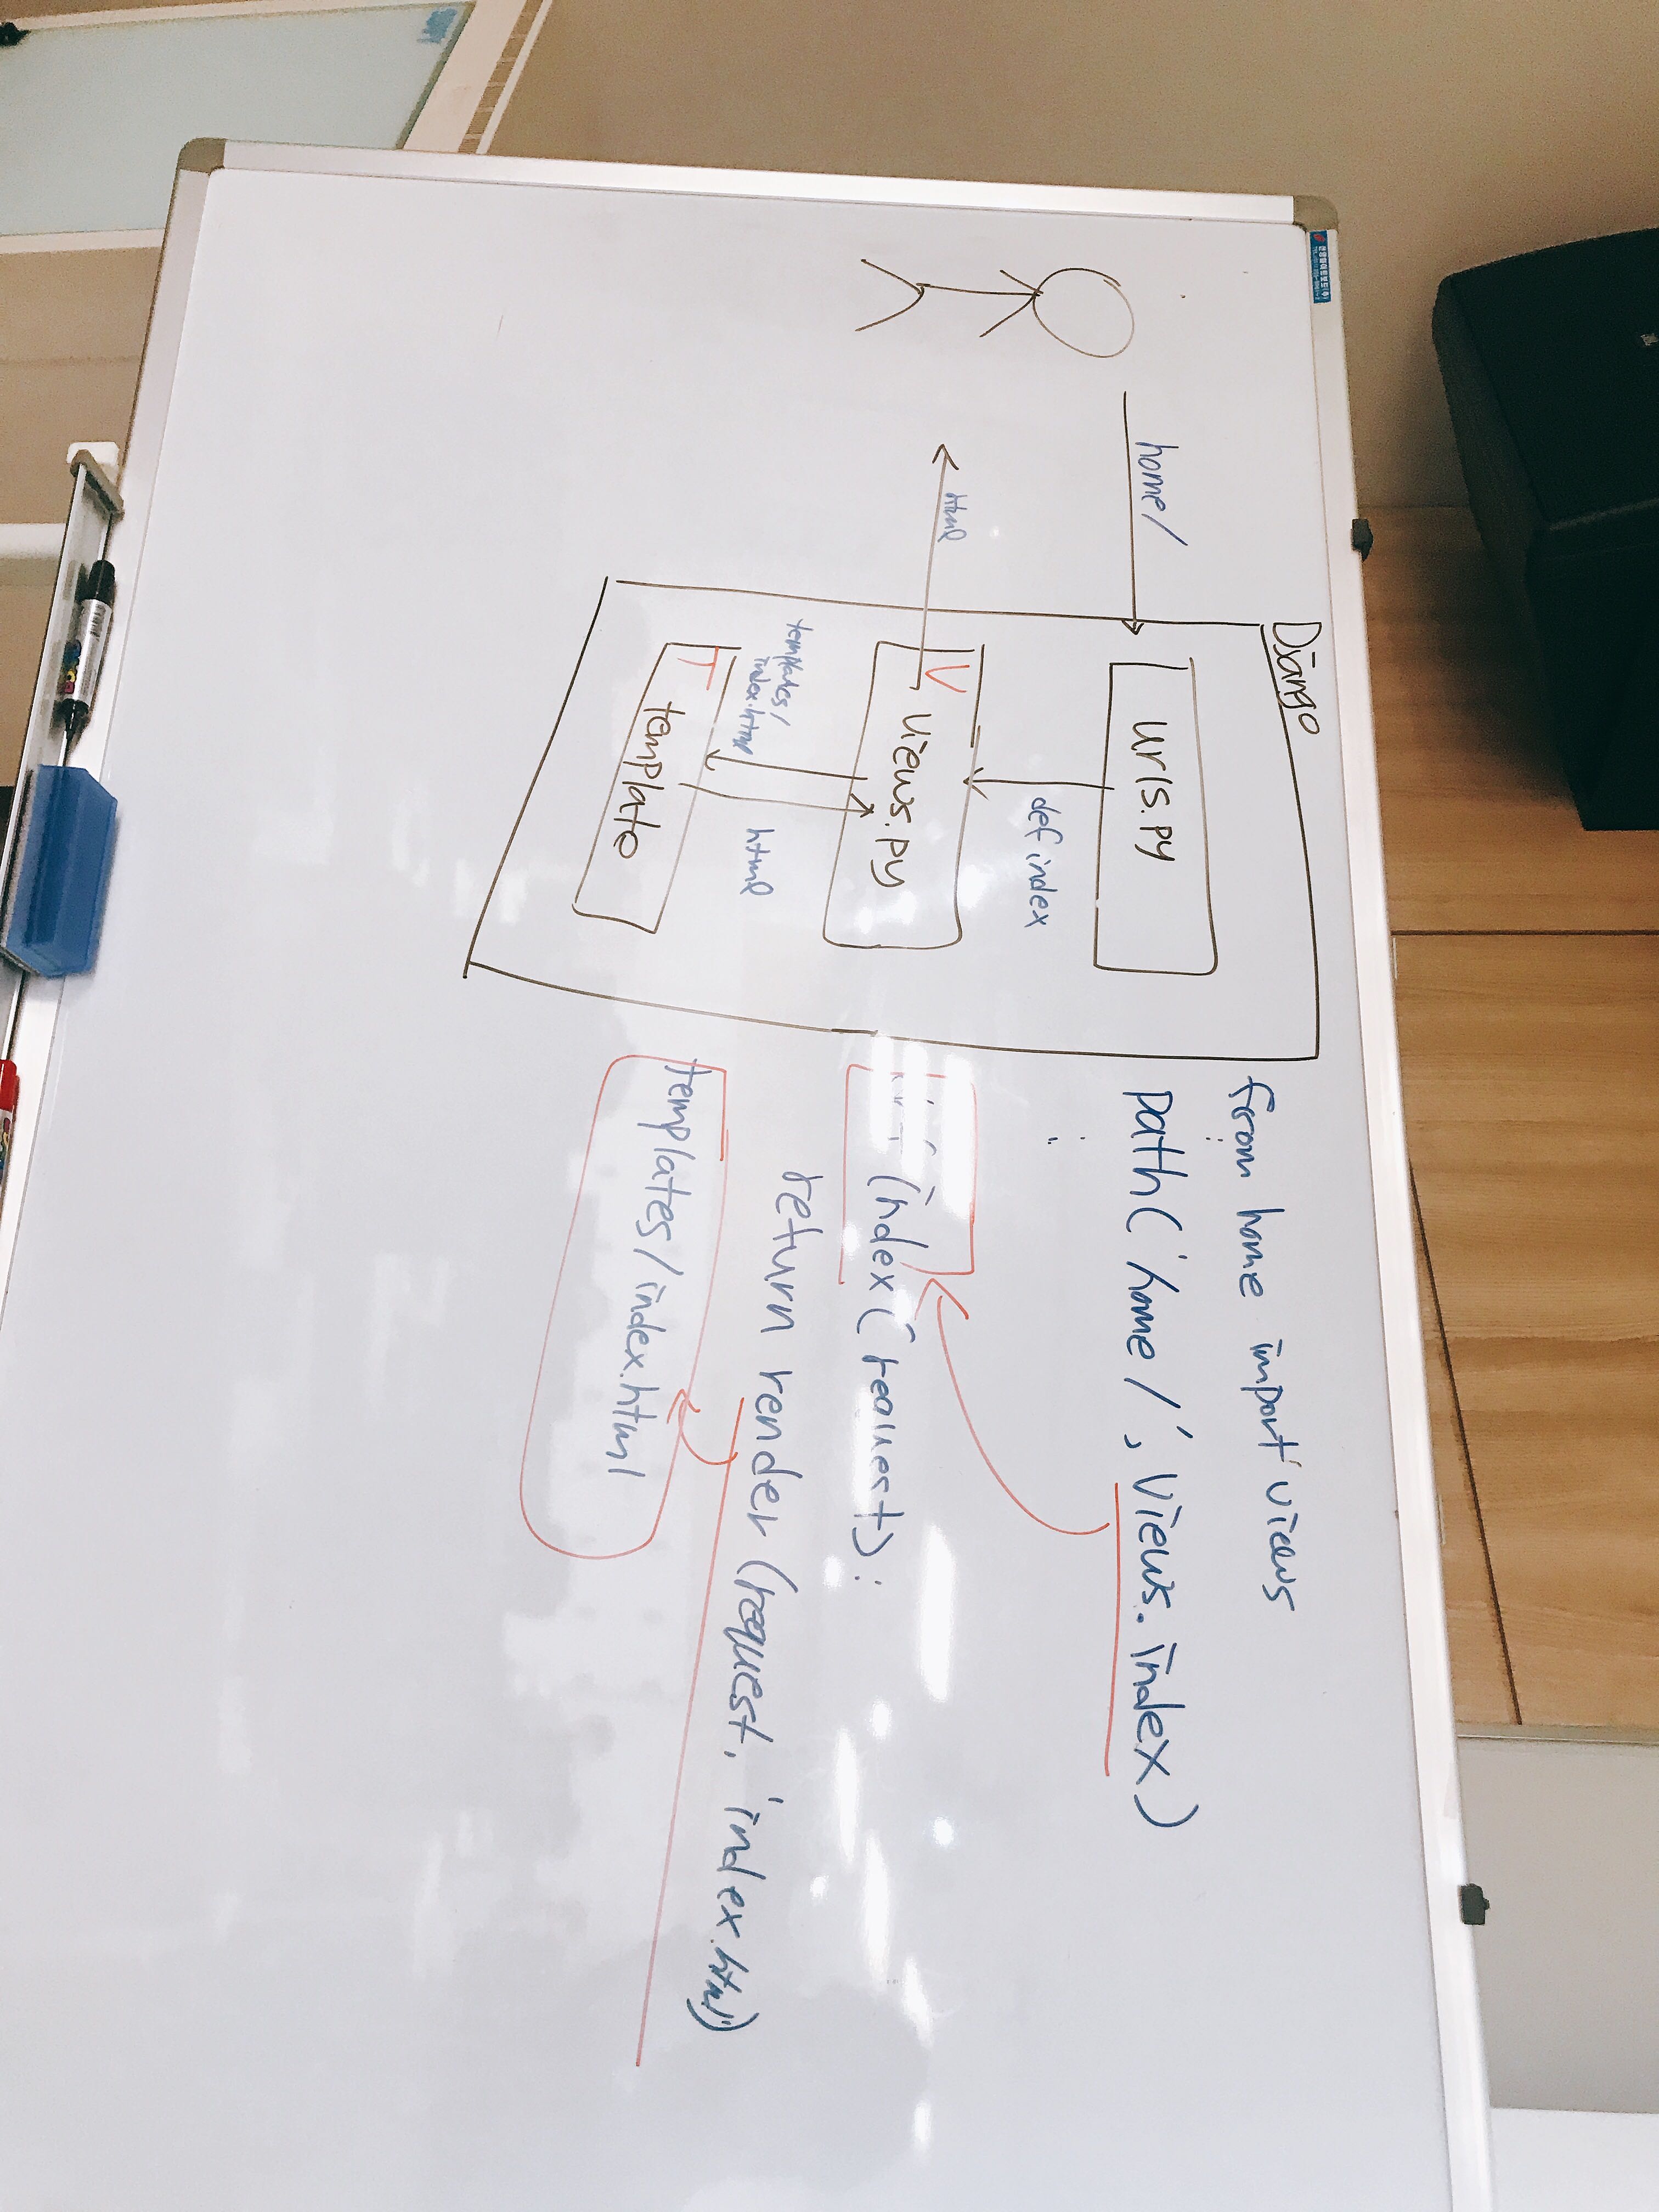 Django
home/
urls.py
def index
html
V
views.py
templates/
index.html
html
T
template
from home import views
path('home/', views.index)
index(request):
return render(request, 'index.html')
templates/index.html